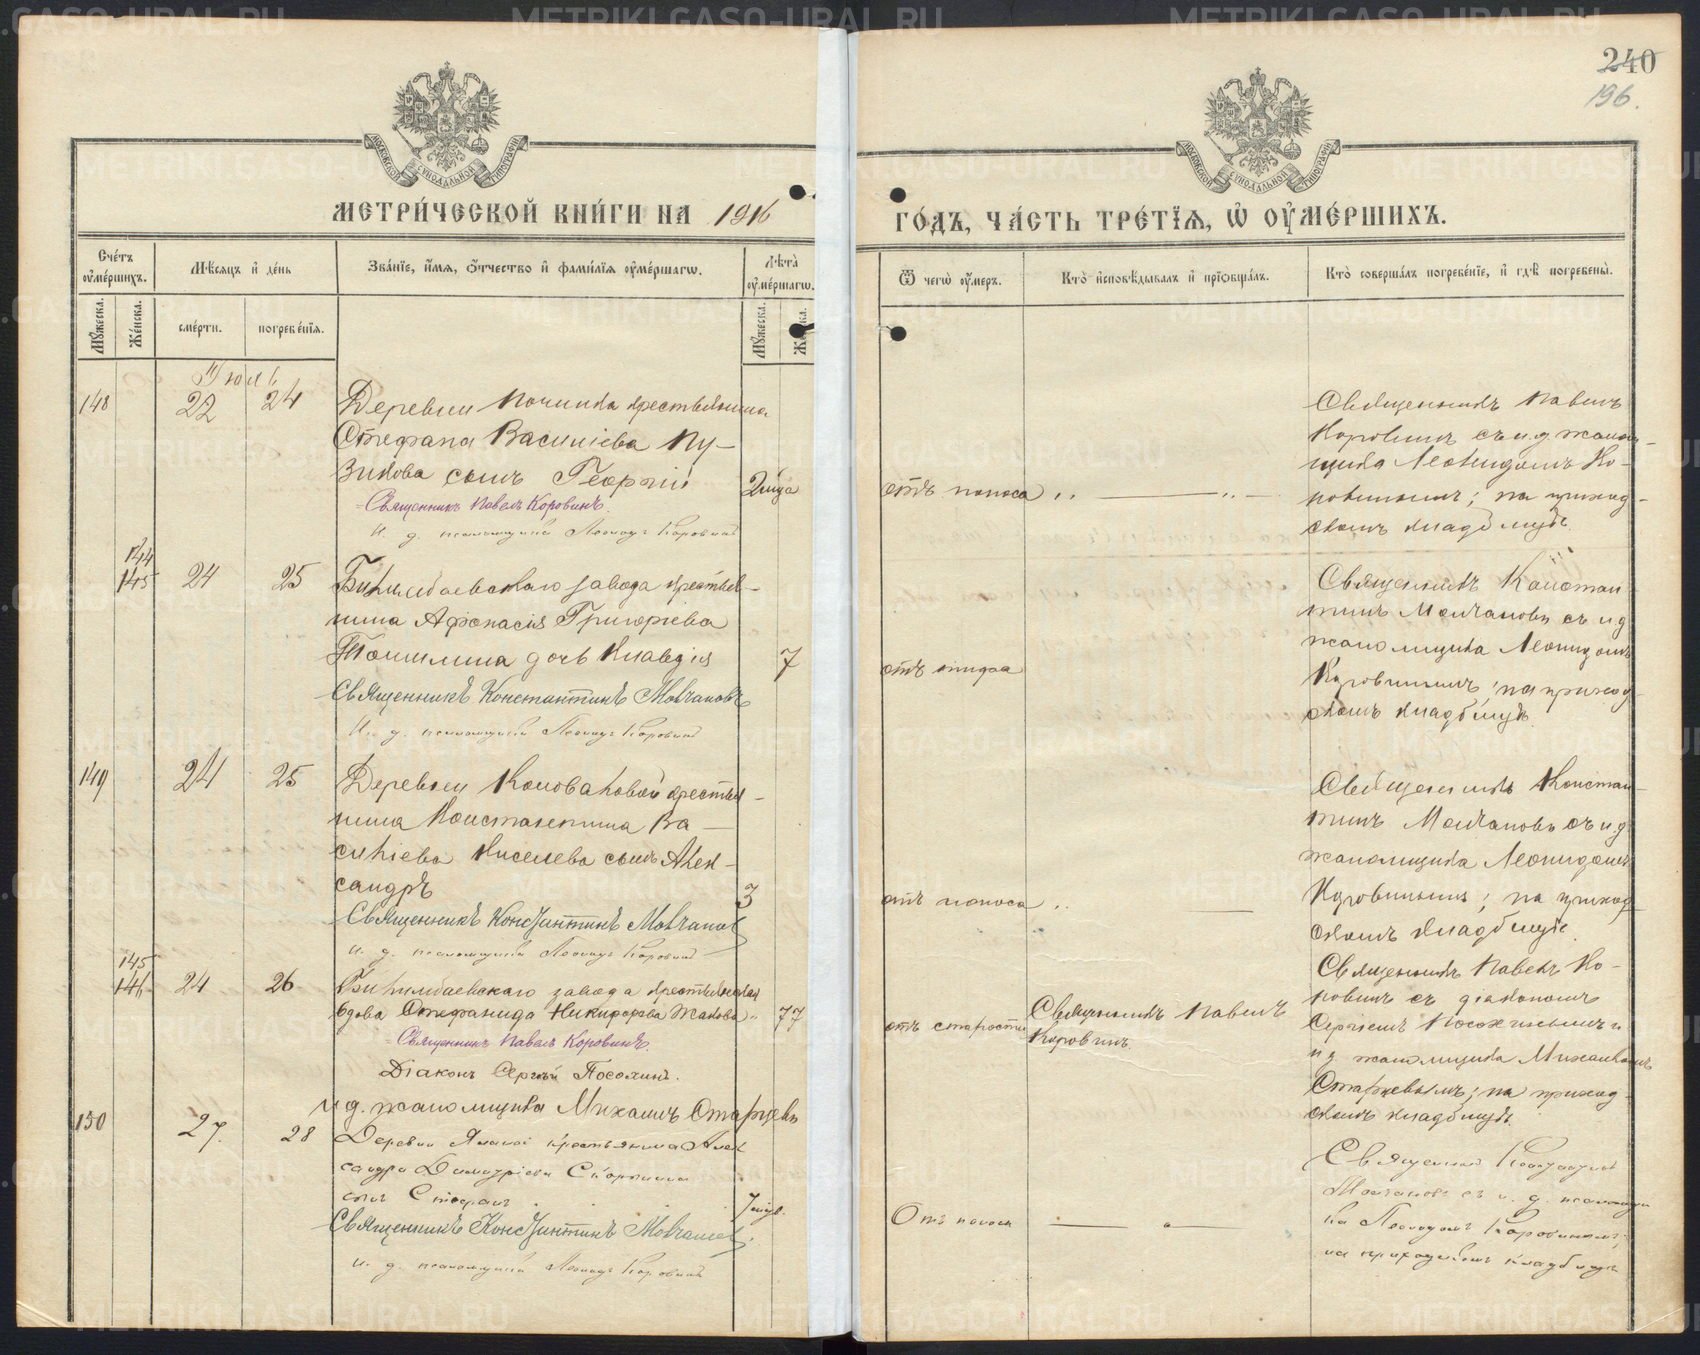 240
196.
МОСКОВСКОЙ СѴНОДАЛЬНОЙ ТИПОГРАФІИ
МОСКОВСКОЙ СѴНОДАЛЬНОЙ ТИПОГРАФІИ
МЕТРИ́ЧЕСКОЙ КНИ́ГИ НА 1916
ГО́ДЪ, ЧА́СТЬ ТРЕ́ТЇѦ, Ѡ҆ ОУ҆МЕ́РШИХЪ.
Сче́тъ оу҆ме́ршихъ.
Мѣ́сѧцъ и҆ де́нь
Зва́нїе, и҆́мѧ, ѻ҆́тчество и҆ фами́лїѧ оу҆ме́ршагѡ.
Лѣ́та̀ оу҆ме́ршагѡ.
Ѿ чегѡ̀ оу҆́меръ.
Кто̀ и҆сповѣ́дывалъ и҆ прїѡбща́лъ.
Кто̀ соверша́лъ погребе́нїе, и҆ гдѣ̀ погребены̀.
Мꙋ́жеска. Же́нска. сме́рти. погребе́нїѧ. Мꙋ́жеска. Же́нска.
Іюль
148 22 24 Деревни Починка крестьянина
Стефана Василіева Пу-
зикова сынъ Георгій 2 мѣсяца
Священникъ Павелъ Коровинъ.
И. д. псаломщика Леонидъ Коровинъ
отъ поноса
Священникъ Павелъ
Коровинъ съ и.д. псалом-
щика Леонидомъ Ко-
ровинымъ; на приход-
скомъ кладбищѣ.
144
145 24 25 Билимбаевскаго завода крестья-
нина Афанасія Григоріева
дочь Клавдія 7
Священникъ Константинъ Молчановъ
И. д. псаломщика Леонидъ Коровинъ
отъ
Священникъ Констан-
тинъ Молчановъ съ и.д.
псаломщика Леонидомъ
Коровинымъ; на приход-
скомъ кладбищѣ.
149 24 25 Деревни Коноваловой крестья-
нина Константина Ва-
силіева Киселева сынъ Алек-
сандръ 3
Священникъ Константинъ Молчановъ
И. д. псаломщика Леонидъ Коровинъ
отъ поноса
Священникъ Констан-
тинъ Молчановъ съ и.д.
псаломщика Леонидомъ
Коровинымъ; на приход-
скомъ кладбищѣ.
145
146 24 26 Билимбаевскаго завода крестьянская
вдова Стефанида Никифорова 77
Священникъ Павелъ Коровинъ.
Діаконъ Сергѣй Посохинъ.
И.д. псаломщика Михаилъ Старцевъ
отъ старости
Священникъ Павелъ
Коровинъ.
Священникъ Павелъ Ко-
ровинъ съ діакономъ
Сергіемъ Посохинымъ и
и.д. псаломщика Михаиломъ
Старцевымъ; на приход-
скомъ кладбищѣ.
150 27. 28 Деревни крестьянина Алек
сандра Димитріева
сынъ Стефанъ 7 мѣс.
Священникъ Константинъ Молчановъ
И. д. псаломщика Леонидъ Коровинъ
Отъ поноса
Священникъ Константинъ
Молчановъ съ и. д. псаломщи
ка Леонидомъ Коровинымъ;
на приходскомъ кладбищѣ
METRIKI.GASO-URAL.RU